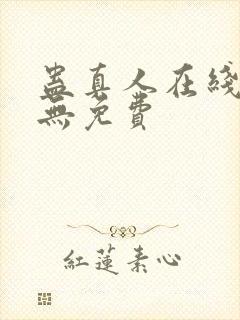 蛊真人在綫
無免費
紅蓮素心